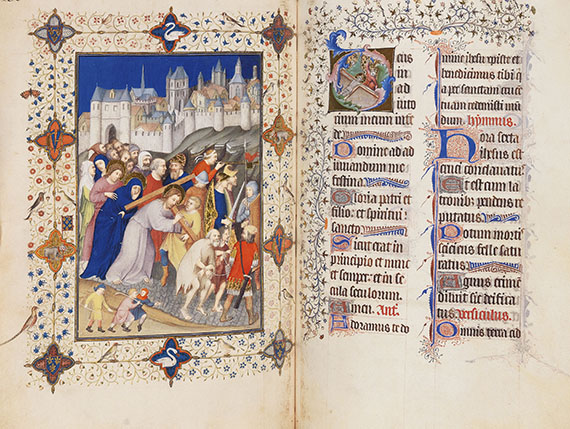 Deus
in ad
iuto
rium meum inte
de
Domine ad ad
iuuandum me
festina
Gloria patri et
filio et spiritui
sancto
Sicut erat in
principio et nunc
et semper: et in se
cula seculorum.
Amen. Ant.
Adoramus te do
mine ihesu xpiste et
benedicimus tibi q
a per sanctam cruce
tuam redemisti mu
dum. hymnus.
Hora sexta
ihesus est
cruci conclauatus
est cum la
tronibus pendens re
putatus
Potum
felle satu
ratus
Agnus crime
diluit sic deifica
tus versiculus.
Omnis terra ad